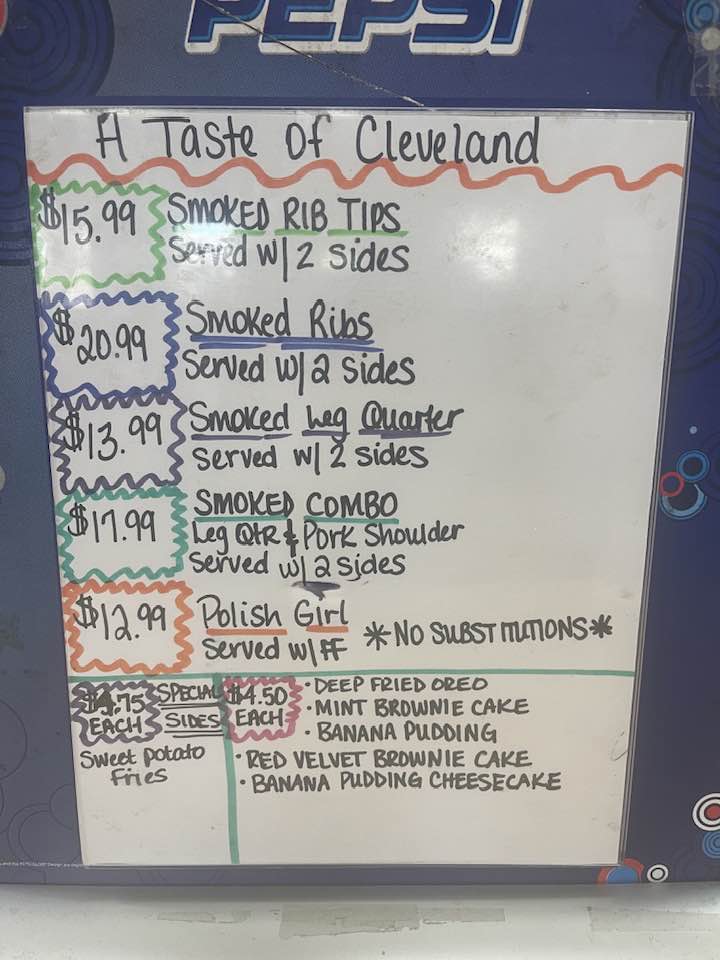 PEPSI
A Taste Of Cleveland
$15.99 SMOKED RIB TIPS
Served w/ 2 sides
$20.99 Smoked Ribs
Served w/ 2 sides
$13.99 Smoked Leg Quarter
Served w/ 2 sides
$17.99 SMOKED COMBO
Leg QtR & Pork Shoulder
Served w/ 2 sides
$12.99 Polish Girl
Served w/ FF *NO SUBSTITUTIONS*
$4.75 EACH SPECIAL SIDES
Sweet Potato
Fries
$4.50 EACH
• DEEP FRIED OREO
• MINT BROWNIE CAKE
• BANANA PUDDING
• RED VELVET BROWNIE CAKE
• BANANA PUDDING CHEESECAKE